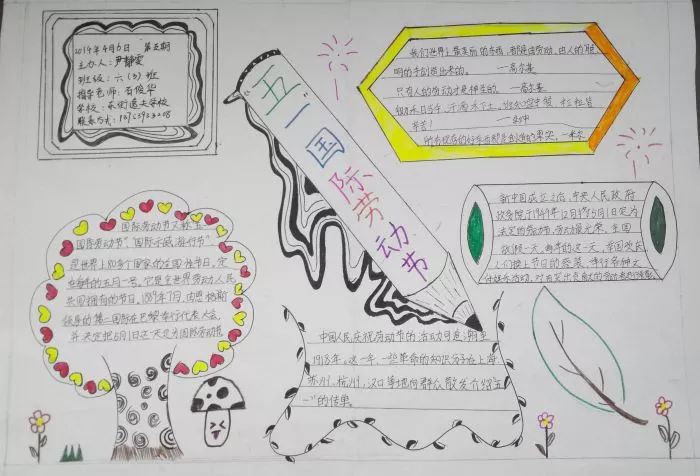 2019年4月6日 第五期
主办人：尹静雯
班级：六（3）班
指导老师：石俊华
学校：东街逸夫学校
五一国际劳动节
我们世界上最美丽的东西，都是由劳动、由人的聪
明的手创造出来的。 ——高尔基
只有人的劳动才是神圣的 ——高尔基
锄禾日当午，汗滴禾下土。谁知盘中餐 粒粒皆
辛苦！
新中国成立之后，中央人民政府
政务院于1949年12月
法定的劳动节，劳动最光荣，全国
放假一天，每年的这一天，全国欢庆
人们换上节日的盛装，举行各种文
国际劳动节又称"五一
国际劳动节"、"国际示威游行节"
是世界上80多个国家的全国性节日，定
在每年的五月一号。它是全世界劳动人民
共同拥有的节日，1889年7月，由恩格斯
领导的第二国际在巴黎举行代表大会，
并决定把5月1日这一天定为国际劳动节
中国人民庆祝劳动节的活动可追溯至
1918年。这一年，一些革命的知识分子在上海
苏州，杭州，汉口等地向群众散发介绍"五
一"的传单。